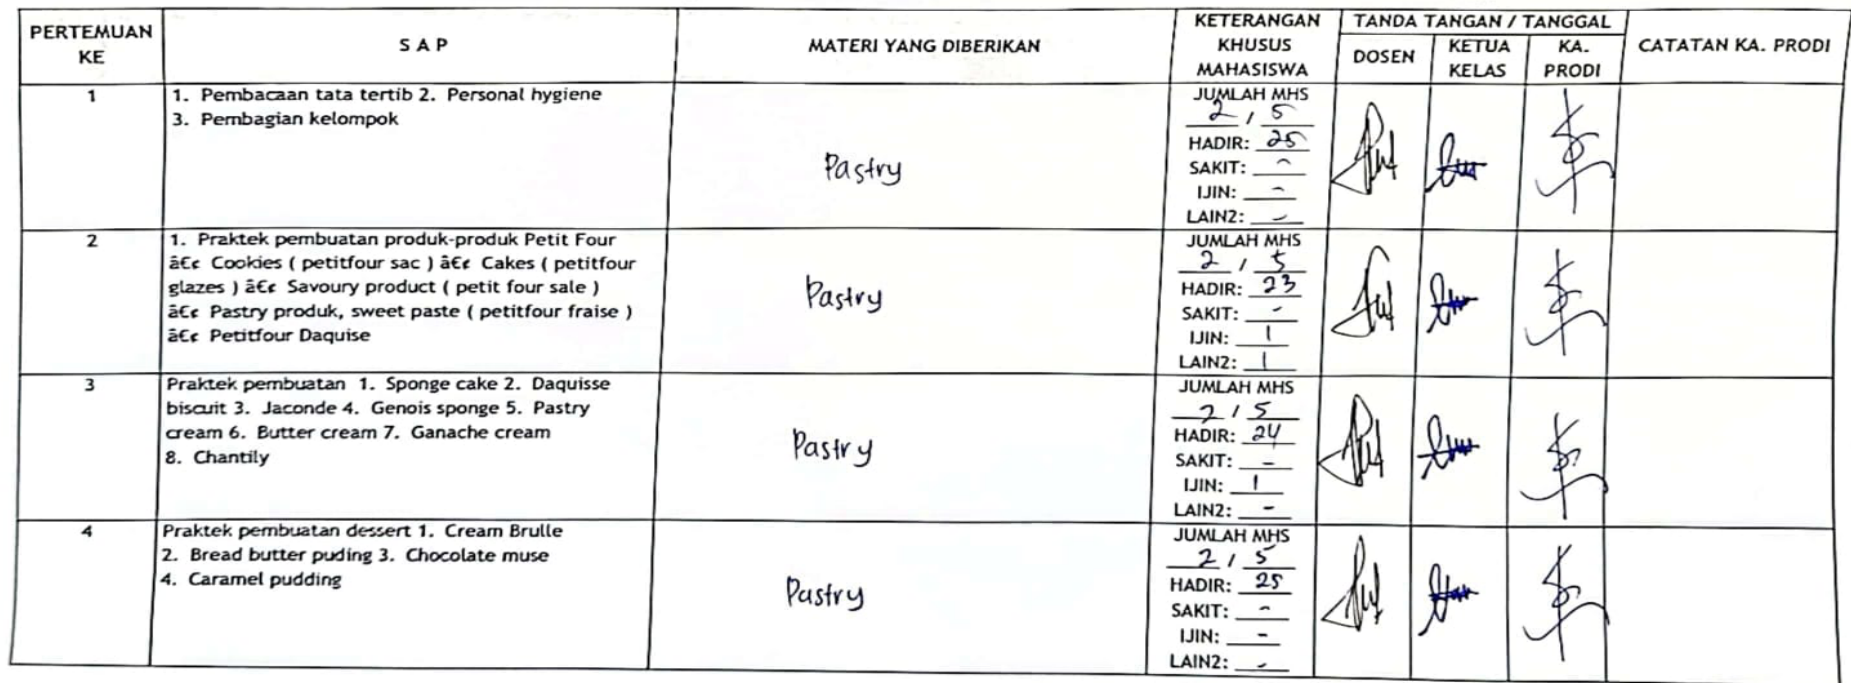 PERTEMUAN KE
S A P
MATERI YANG DIBERIKAN
KETERANGAN KHUSUS MAHASISWA
TANDA TANGAN / TANGGAL
DOSEN
KETUA KELAS
KA. PRODI
CATATAN KA. PRODI
1
1. Pembacaan tata tertib 2. Personal hygiene
3. Pembagian kelompok
Pastry
JUMLAH MHS
2 / 5
HADIR: 25
SAKIT: -
IJIN: -
LAIN2: -
2
1. Praktek pembuatan produk-produk Petit Four
â€¢ Cookies ( petitfour sac ) â€¢ Cakes ( petitfour
glazes ) â€¢ Savoury product ( petit four sale )
â€¢ Pastry produk, sweet paste ( petitfour fraise )
â€¢ Petitfour Daquise
Pastry
JUMLAH MHS
2 / 5
HADIR: 23
SAKIT: -
IJIN: 1
LAIN2: 1
3
Praktek pembuatan 1. Sponge cake 2. Daquisse
biscuit 3. Jaconde 4. Genois sponge 5. Pastry
cream 6. Butter cream 7. Ganache cream
8. Chantily
Pastry
JUMLAH MHS
2 / 5
HADIR: 24
SAKIT: -
IJIN: 1
LAIN2: -
4
Praktek pembuatan dessert 1. Cream Brulle
2. Bread butter puding 3. Chocolate muse
4. Caramel pudding
Pastry
JUMLAH MHS
2 / 5
HADIR: 25
SAKIT: -
IJIN: -
LAIN2: -